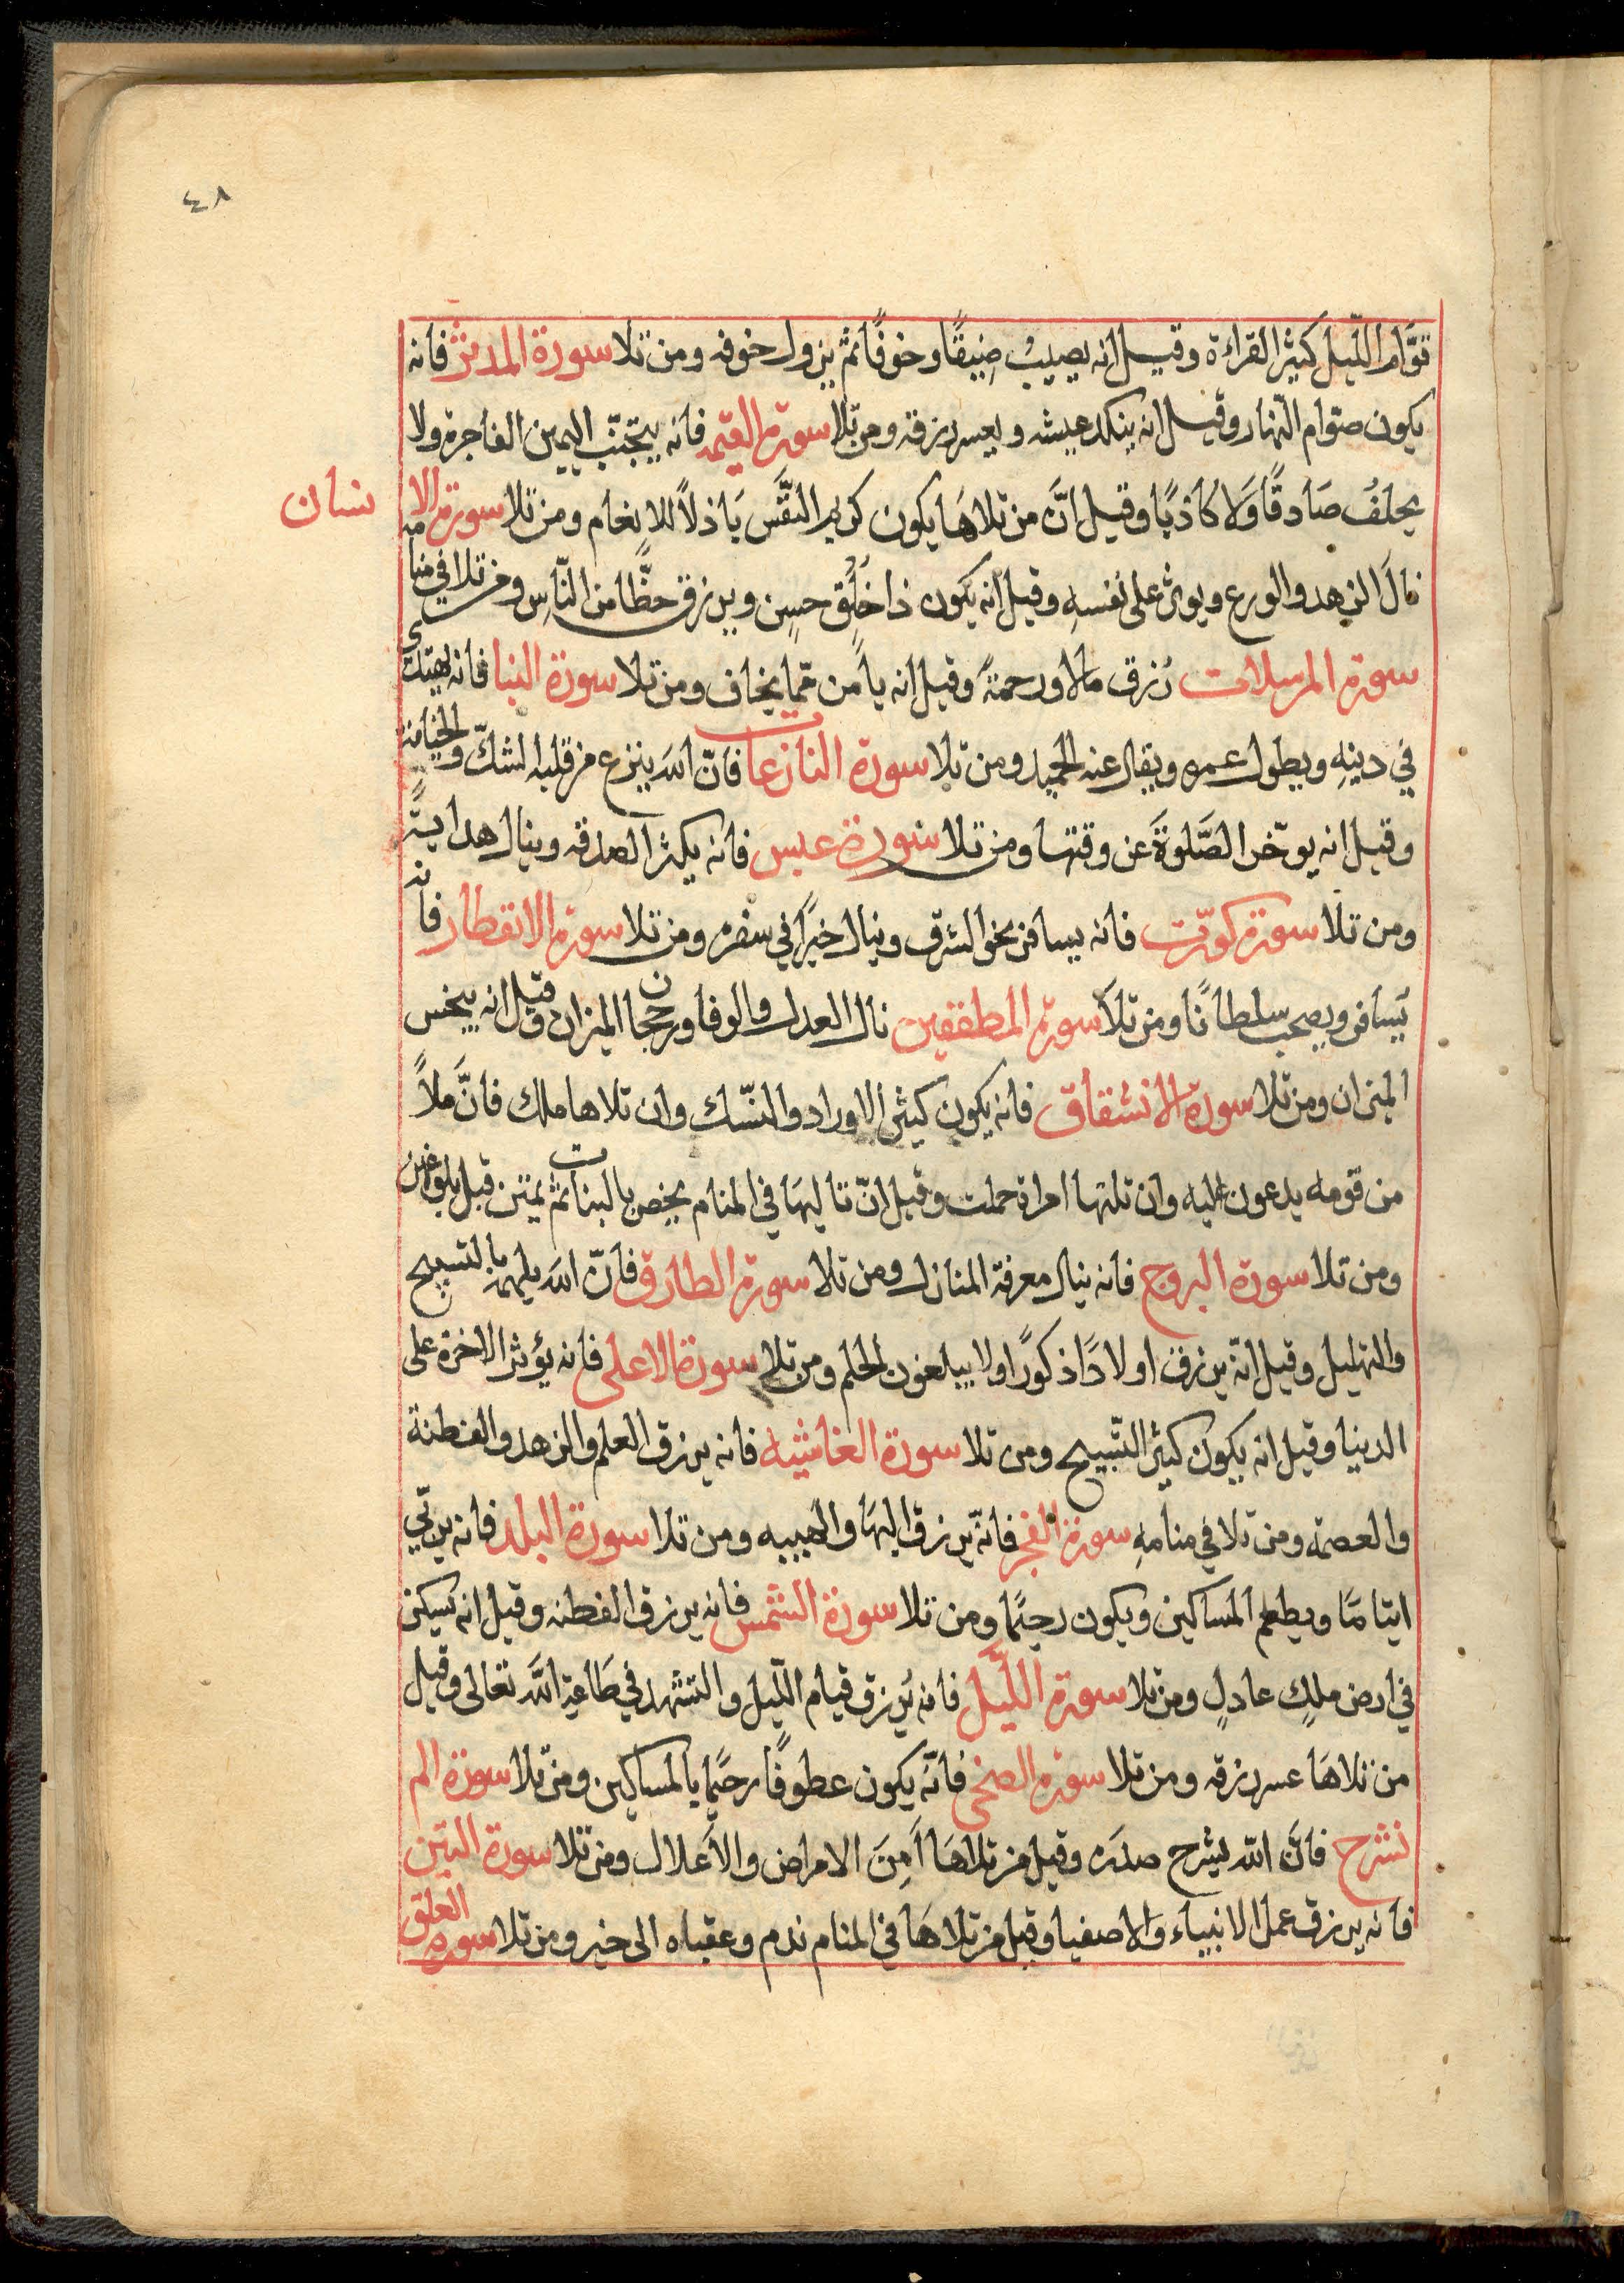 ٤٨
قوّام الليل كثير القراءة وقيل انه يصيب ضيقًا وخوفًا ثم يزول خوفه ومن تلا سورة المدثر فانه
يكون صوّام النهار وقيل انه ينكد عيشه ويعسر رزقه ومن تلا سورة القيمه فانه يتجنّب اليمين الفاجرة ولا
يحلفُ صَادقًا وَلا كاذبًا وقيل انَّ من تلاهَا يكون كريم النفس بَاذلاً للانعام ومن تلا سورة الا نسان
نالَ الزهد والورع ويوثر على نفسهِ وقيل انه يكون ذا خُلُق حسن ويرزق حظًّا من النّاسِ ومن تلا في منامه
سورة المرسلات رُزق مالا ورحمةً وقيل انه يأمن ممّا يخاف ومن تلا سورة النبا فانه يهتدى
في دينهِ ويطول عمره ويقال عنه الجميل ومن تلا سورة النازعات فانّ الله ينزع من قلبه الشكّ والخيانة
وقيل انه يوخّر الصَّلوةَ عن وقتها ومن تلا سورة عبس فانه يكثر الصدقه وينال هدايتًه
ومن تلا سورة كوّرت فانه يسافر نحو الشرق وينال خيرًا في سفره ومن تلا سورة الانفطار فانه
يسافر ويصحب سلطانًا ومن تلا سورة المطففين نال العدل والوفا ورجحان الميزان وقيل انه يبخس
الميزان ومن تلا سورة الانشقاق فانه يكون كثير الاوراد والنسّك وان تلاها ملك فانَّ ملاً
من قومه يدعون عليه وان تلتها امراة حملت وقيل انّ تاليهَا في المنام يخص بالبنات ثم يمتن قبل بلوغهن
ومن تلا سورة البروج فانه ينال معرفة المنازل ومن تلا سورة الطارق فانّ الله يلهمه التسبيح
والتهليل وقيل انّه يرزق اولادًا ذكورًا ولا يبلغون الحلم ومن تلا سورة الاعلى فانه يؤثر الاخرة على
الدنيا وقيل انه يكون كثير التّسبيح ومن تلا سورة الغاشيه فانه يرزق العلم والزهد والفطنة
والعصمة ومن تلا في منامهِ سورة الفجر فانّه يرزق البهَا والهيبه ومن تلا سورة البلد فانه يربّي
ايتامًا ويطعم المساكين ويكون رحيمًا ومن تلا سورة الشمس فانه يرزق الفطنه وقيل انه يسكن
في ارض ملكٍ عادلٍ ومن تلا سورة اللّيل فانه يُرزق قيام اللّيل والتشهد في طَاعة اللّه تعالى وقيل
من تلاهَا عسر رزقه ومن تلا سورة الضحى فانّه يكون عطوفًا رحيمًا بالمساكين ومن تلا سورة الم
نشرح فانَّ اللّه يشرح صدرَه وقيل من تلاهَا اَمِنَ الامراض والاَعلال ومن تلا سورة التين
فانه يرزق عمل الانبياء والاصفيا وقيل من تلاهَا في المنام ندم وعقباه الى خير ومن تلا سورة العلق